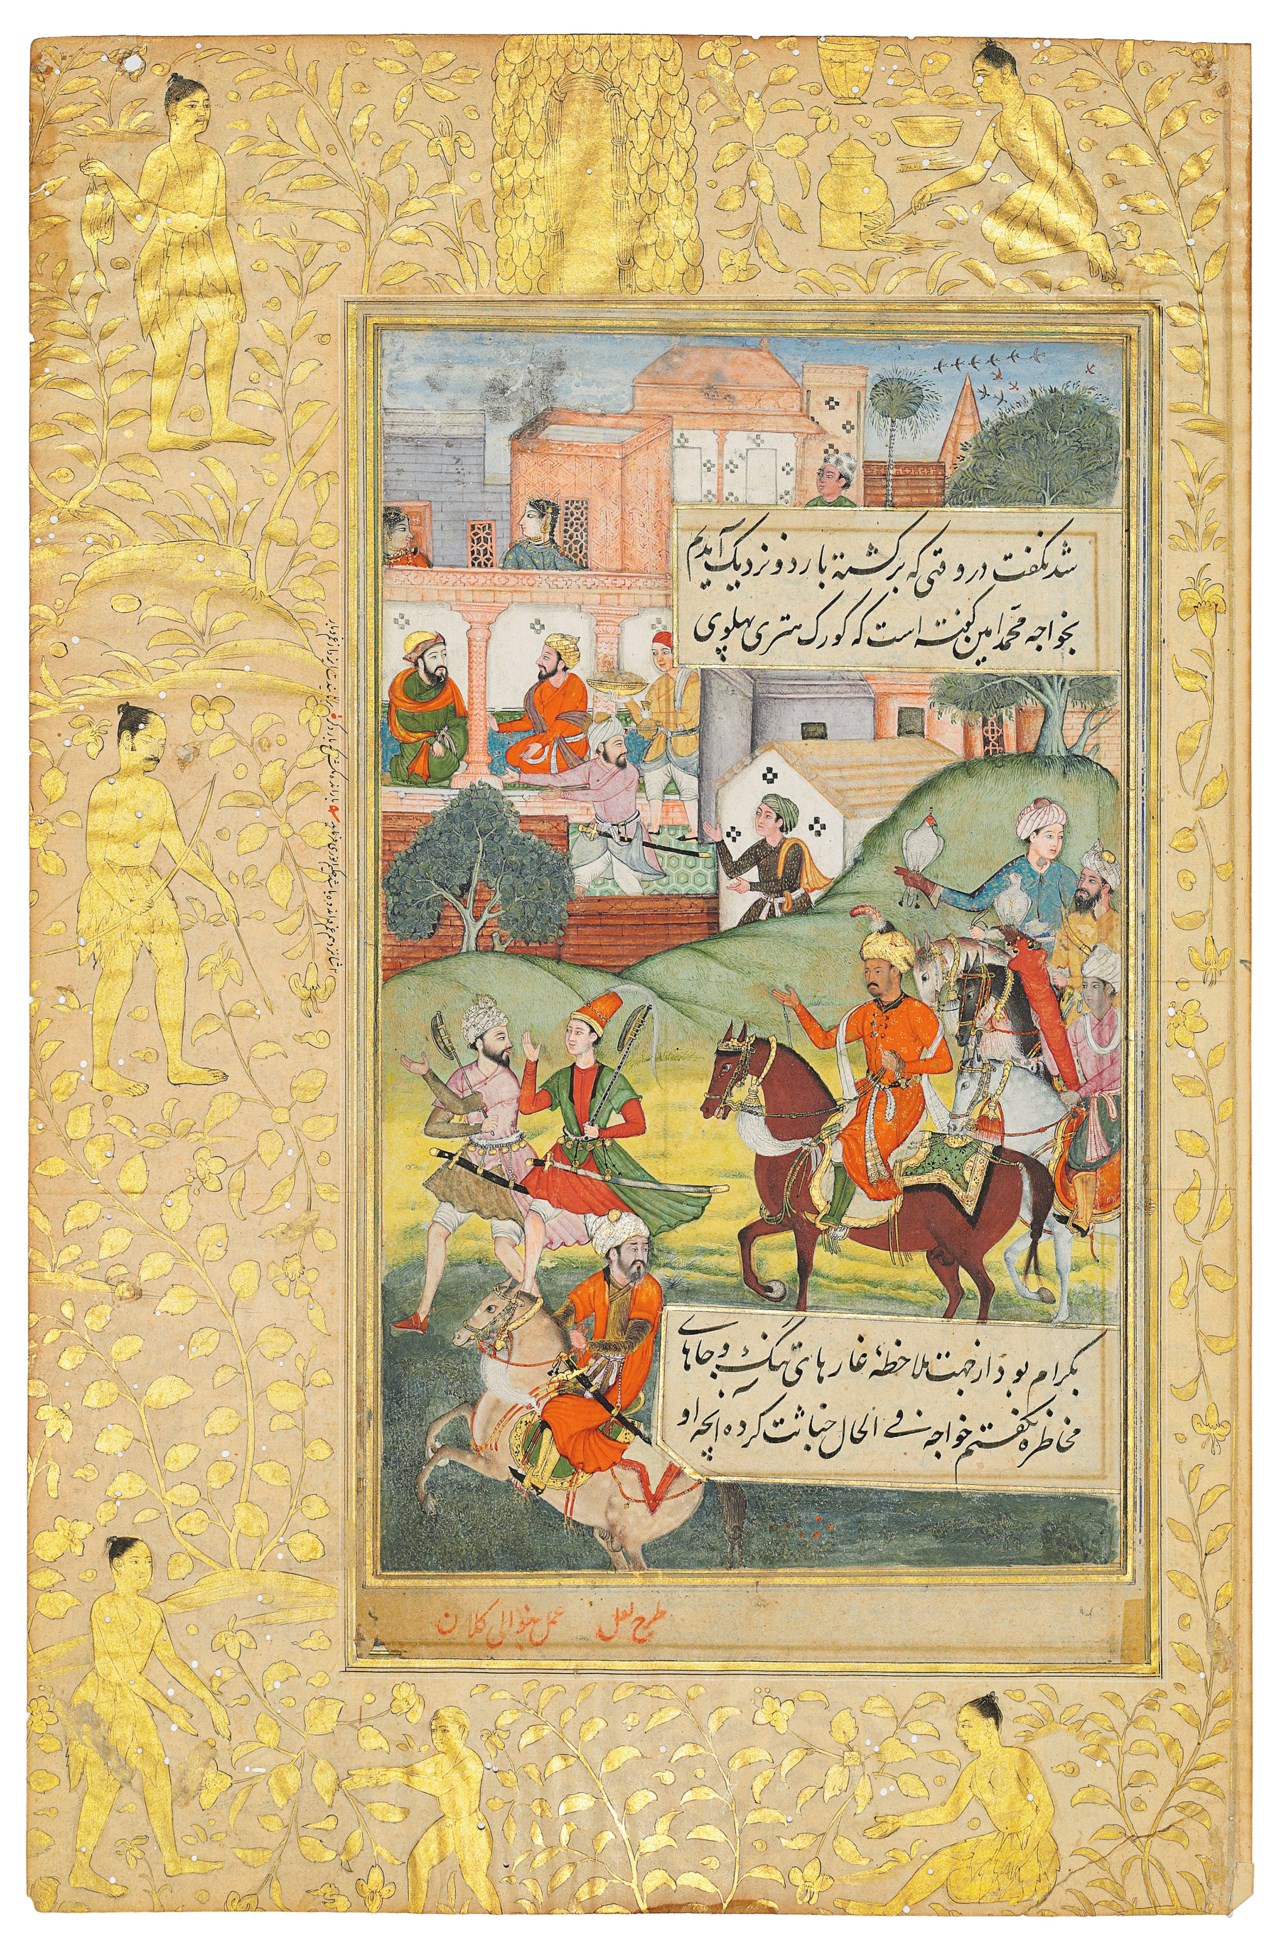 شد نکفت در وقتی که برکشته بارد و نزدیک آمدیم
بخواجه محمد امین گفته است که کورک هتری پهلوی
بکرام بود از جهت ملاحظهٔ غارهای تنک و جاهای
مخاطره نکفتم خواجه فی الحال خباثت کرده آنچه او
طرح لعل عمل بنوالی کلان